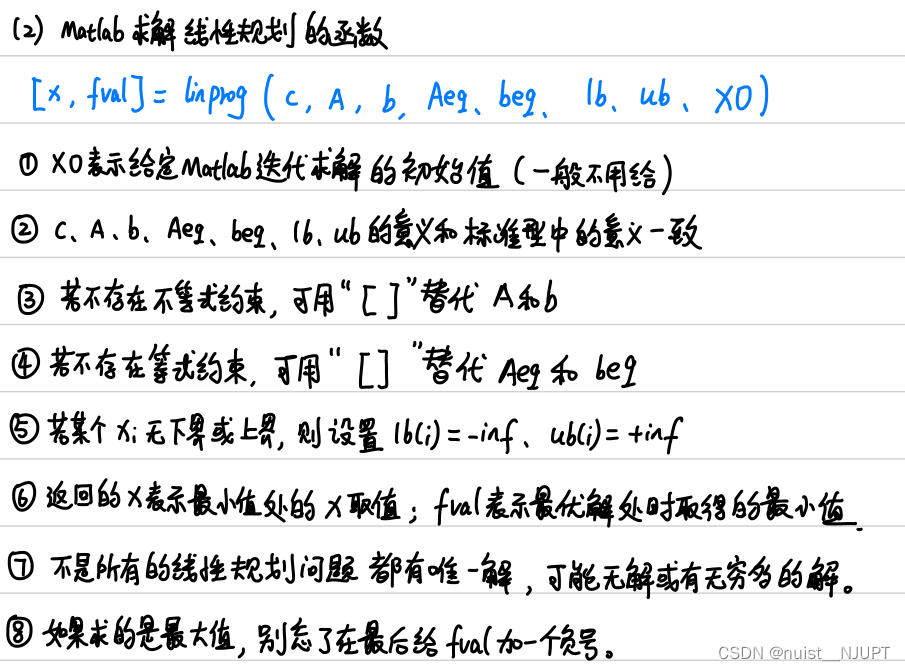 (2) Matlab求解线性规划的函数
[x, fval] = linprog (c, A, b, Aeq、beq、lb、ub、X0)
① X0表示给定Matlab迭代求解的初始值（一般不用给）
② c、A、b、Aeq、beq、lb、ub的意义和标准型中的意义一致
③ 若不存在不等式约束,可用“[ ]”替代 A和b
④ 若不存在等式约束,可用“[ ]”替代 Aeq和 beq
⑤ 若某个 xi 无下界或上界,则设置 lb(i)=-inf、ub(i)=+inf
⑥ 返回的x表示最小值处的x取值；fval表示最优解处时取得的最小值.
⑦ 不是所有的线性规划问题都有唯一解,可能无解或有无穷多的解。
⑧ 如果求的是最大值,别忘了在最后给fval加一个负号。
CSDN @nuist__NJUPT